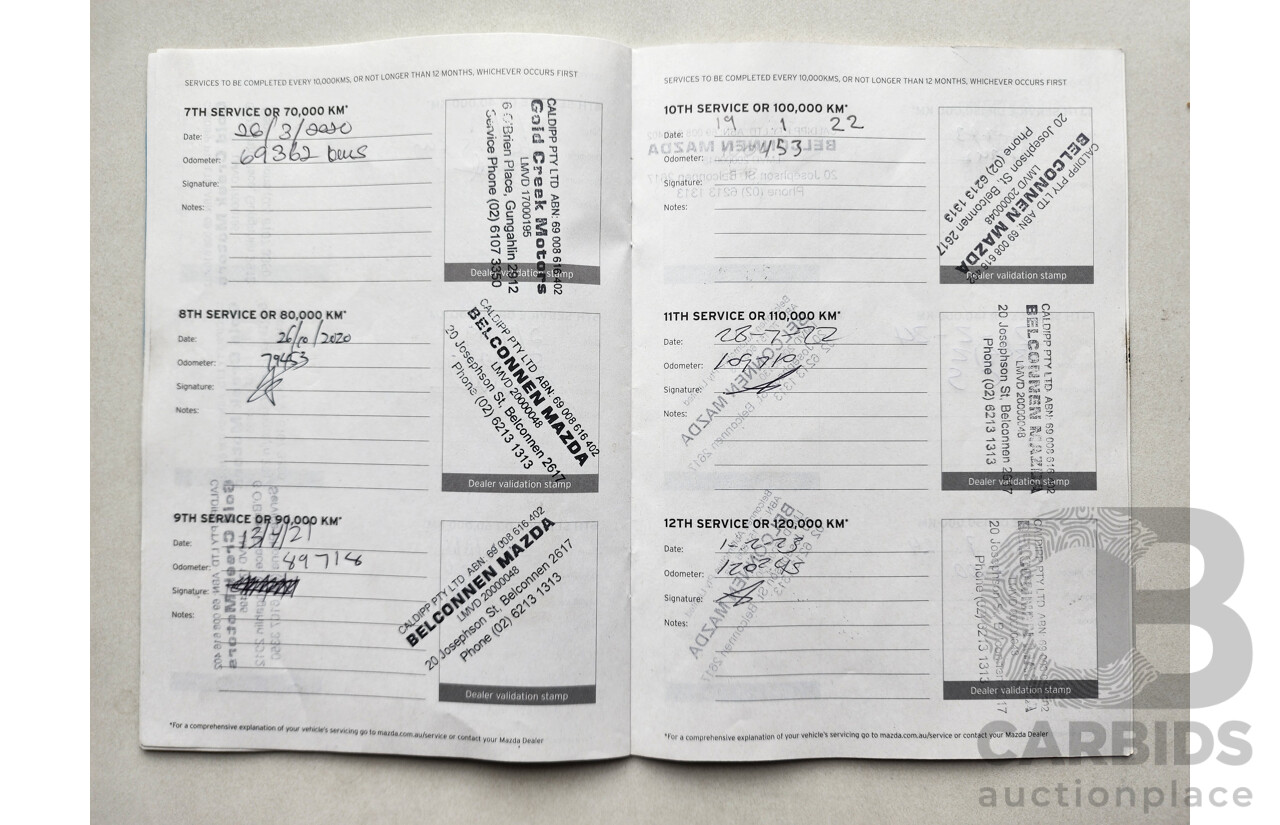 SERVICES TO BE COMPLETED EVERY 10,000KMS, OR NOT LONGER THAN 12 MONTHS, WHICHEVER OCCURS FIRST
7TH SERVICE OR 70,000 KM*
Date: 26/3/2020
Odometer: 69362
Signature:
Notes:
CALDIPP PTY LTD ABN: 69 008 616 402
Gold Creek Motors
LMVD 17000195
6 O'Brien Place, Gungahlin 2912
Service Phone (02) 6107 3350
Dealer validation stamp
8TH SERVICE OR 80,000 KM*
Date: 26/10/2020
Odometer: 79453
Signature:
Notes:
CALDIPP PTY LTD ABN: 69 008 616 402
BELCONNEN MAZDA
LMVD 20000048
20 Josephson St, Belconnen 2617
Phone (02) 6213 1313
Dealer validation stamp
9TH SERVICE OR 90,000 KM*
Date: 13/4/21
Odometer: 89714
Signature:
Notes:
CALDIPP PTY LTD ABN: 69 008 616 402
BELCONNEN MAZDA
LMVD 20000048
20 Josephson St, Belconnen 2617
Phone (02) 6213 1313
Dealer validation stamp
*For a comprehensive explanation of your vehicle's servicing go to mazda.com.au/service or contact your Mazda Dealer
SERVICES TO BE COMPLETED EVERY 10,000KMS, OR NOT LONGER THAN 12 MONTHS, WHICHEVER OCCURS FIRST
10TH SERVICE OR 100,000 KM*
Date: 19 1 22
Odometer:
Signature:
Notes:
CALDIPP PTY LTD ABN: 69 008 616 402
BELCONNEN MAZDA
LMVD 20000048
20 Josephson St, Belconnen 2617
Phone (02) 6213 1313
Dealer validation stamp
11TH SERVICE OR 110,000 KM*
Date: 28-7-22
Odometer:
Signature:
Notes:
CALDIPP PTY LTD ABN: 69 008 616 402
BELCONNEN MAZDA
LMVD 20000048
20 Josephson St, Belconnen 2617
Phone (02) 6213 1313
Dealer validation stamp
12TH SERVICE OR 120,000 KM*
Date:
Odometer:
Signature:
Notes:
CALDIPP PTY LTD ABN:
Phone (02) 6213 1313
Dealer validation stamp
*For a comprehensive explanation of your vehicle's servicing go to mazda.com.au/service or contact your Mazda Dealer
B
CARBIDS
auctionplace